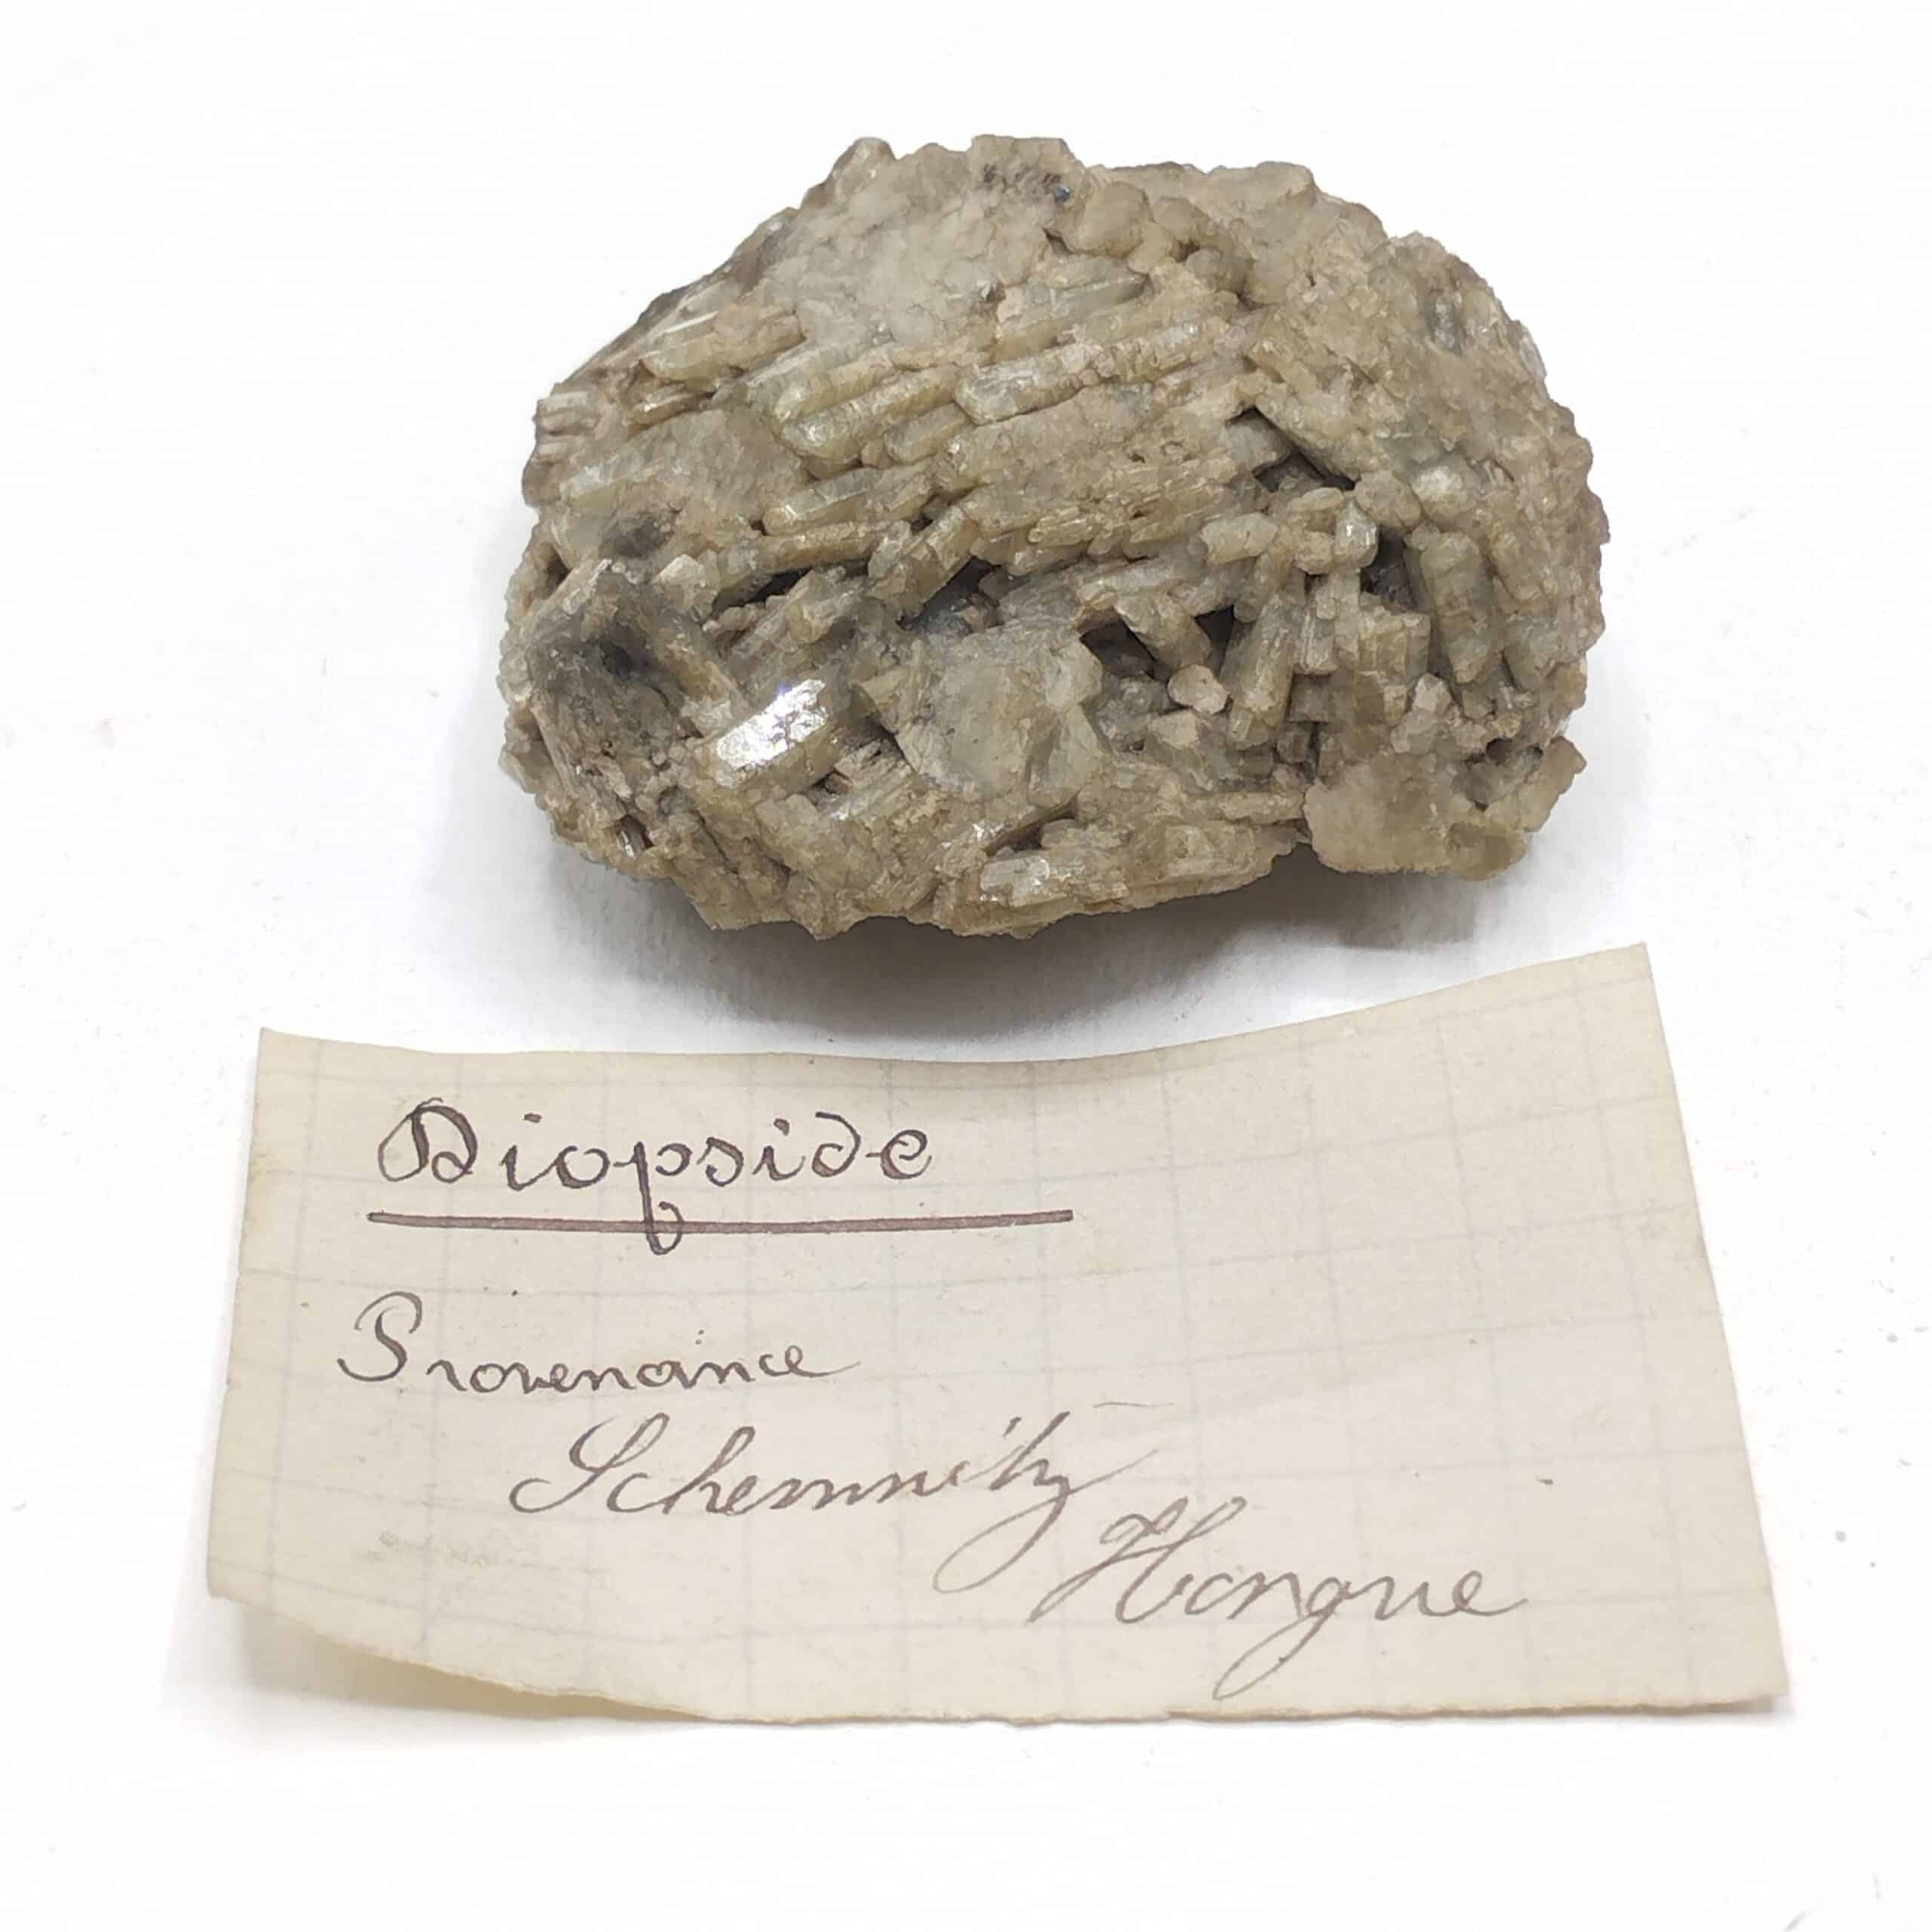 Diopside
Provenance
Schemnitz
Hongrie